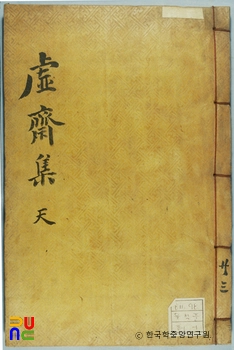 虛齋集 天
共三
© 한국학중앙연구원